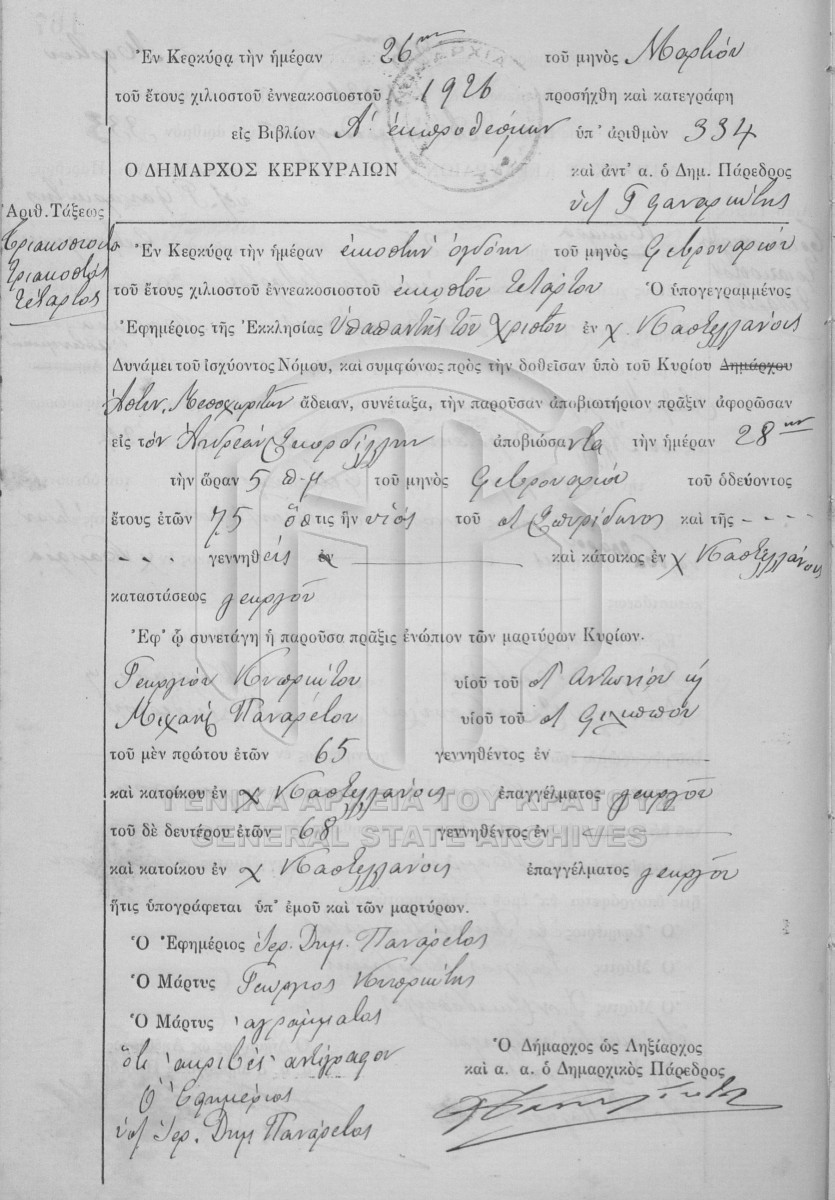 Ἐν Κερκύρᾳ τὴν ἡμέραν 26ην τοῦ μηνὸς Μαρτίου
τοῦ ἔτους χιλιοστοῦ ἐννεακοσιοστοῦ 1926 προσήχθη καὶ κατεγράφη
εἰς Βιβλίον Α' ἐκπροθέσμων ὑπ' ἀριθμὸν 334
Ο ΔΗΜΑΡΧΟΣ ΚΕΡΚΥΡΑΙΩΝ καὶ ἀντ' α. ὁ Δημ. Πάρεδρος
Ἀριθ. Τάξεως
Τριακοσιοστὸ
τριακοστὸς
τέταρτος
Ἐν Κερκύρᾳ τὴν ἡμέραν εἰκοστὴν ὀγδόην τοῦ μηνὸς Φεβρουαρίου
τοῦ ἔτους χιλιοστοῦ ἐννεακοσιοστοῦ εἰκοστοῦ τετάρτου Ὁ ὑπογεγραμμένος
Ἐφημέριος τῆς Ἐκκλησίας Ὑπαπαντῆς τοῦ Χριστοῦ ἐν χ. Καστελλάνοις
Δυνάμει τοῦ ἰσχύοντος Νόμου, καὶ συμφώνως πρὸς τὴν δοθεῖσαν ὑπὸ τοῦ Κυρίου Δημάρχου
Ἀστυν. Μεσοχωριτῶν ἄδειαν, συνέταξα, τὴν παροῦσαν ἀποβιωτήριον πρᾶξιν ἀφορῶσαν
εἰς τὸν Ἀνδρέαν Σκορδίλλην ἀποβιώσαντα τὴν ἡμέραν 28ην
τὴν ὥραν 5 π.μ τοῦ μηνὸς Φεβρουαρίου τοῦ ὁδεύοντος
ἔτους ἐτῶν 75 ὅστις ἦν υἱὸς τοῦ Σπυρίδωνος καὶ τῆς - - - -
- - - γεννηθεὶς ἐν καὶ κάτοικος ἐν χ Καστελλάνοις
καταστάσεως γεωργοῦ
Ἐφ' ᾧ συνετάγη ἡ παροῦσα πρᾶξις ἐνώπιον τῶν μαρτύρων Κυρίων.
Γεωργίου Κυπριώτου υἱοῦ τοῦ Ἀντωνίου
Μιχαὴλ Παναρέτου υἱοῦ τοῦ Φιλίππου
τοῦ μὲν πρώτου ἐτῶν 65 γεννηθέντος ἐν
καὶ κατοίκου ἐν χ Καστελλάνοις ἐπαγγέλματος γεωργοῦ
ΓΕΝΙΚΑ ΑΡΧΕΙΑ ΤΟΥ ΚΡΑΤΟΥΣ
τοῦ δὲ δευτέρου ἐτῶν 68 γεννηθέντος ἐν
GENERAL STATE ARCHIVES
καὶ κατοίκου ἐν χ Καστελλάνοις ἐπαγγέλματος γεωργοῦ
ἥτις ὑπογράφεται ὑπ' ἐμοῦ καὶ τῶν μαρτύρων.
Ὁ Ἐφημέριος Ἱερ. Δημ. Πανάρετος
Ὁ Μάρτυς Γεώργιος Κυπριώτης
Ὁ Μάρτυς ἀγράμματος
ὅτι ἀκριβὲς ἀντίγραφον
Ὁ Ἐφημέριος
Ἱερ. Δημ Πανάρετος
Ὁ Δήμαρχος ὡς Ληξίαρχος
καὶ α. α. ὁ Δημαρχικὸς Πάρεδρος